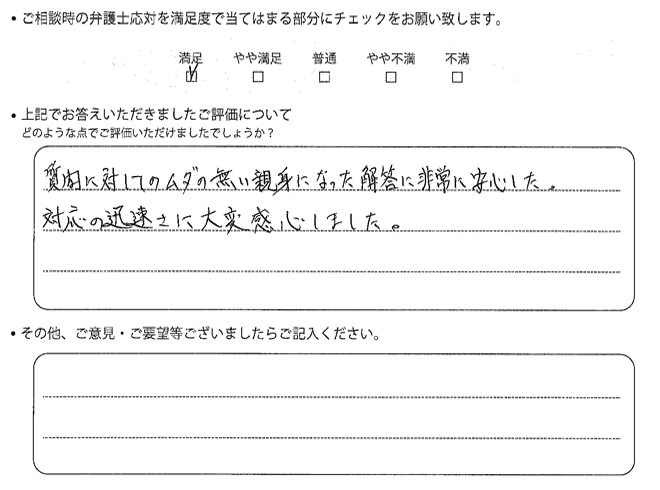 • ご相談時の弁護士応対を満足度で当てはまる部分にチェックをお願い致します。
満足 やや満足 普通 やや不満 不満
☑ □ □ □ □
• 上記でお答えいただきましたご評価について
どのような点でご評価いただけましたでしょうか？
質問に対してのムダの無い親身になった解答に非常に安心した。
対応の迅速さに大変感心しました。
• その他、ご意見・ご要望等ございましたらご記入ください。